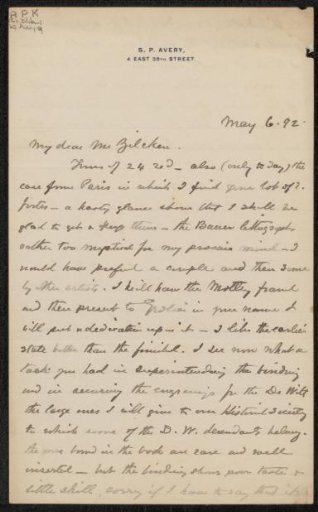 S. P. AVERY,
4 EAST 38TH STREET
May 6. 92.
My dear Mr Zilcken.
Yours of 24 recd – also (only to day) the
case from Paris in which I find your lot of
– a hasty glance shows that I shall be
glad to get & keep them – the Bauer lithographs
rather too mystical for my prosaic mind – I
would have prefered a couple and then some
by other artists. I will have the framed
and then present to in your name I
will put a dedication upon it – I like the earlier
state better than the finished. I see now what a
task you had in superintending the binding
and in securing the engravings for the De Witt
the large ones I will give to our Historical Society
to which some of the D. W. descendants belong.
the ones bound in the book are rare and well
inserted – but the binding shows poor taste &
little skill, sorry if I have to say that it